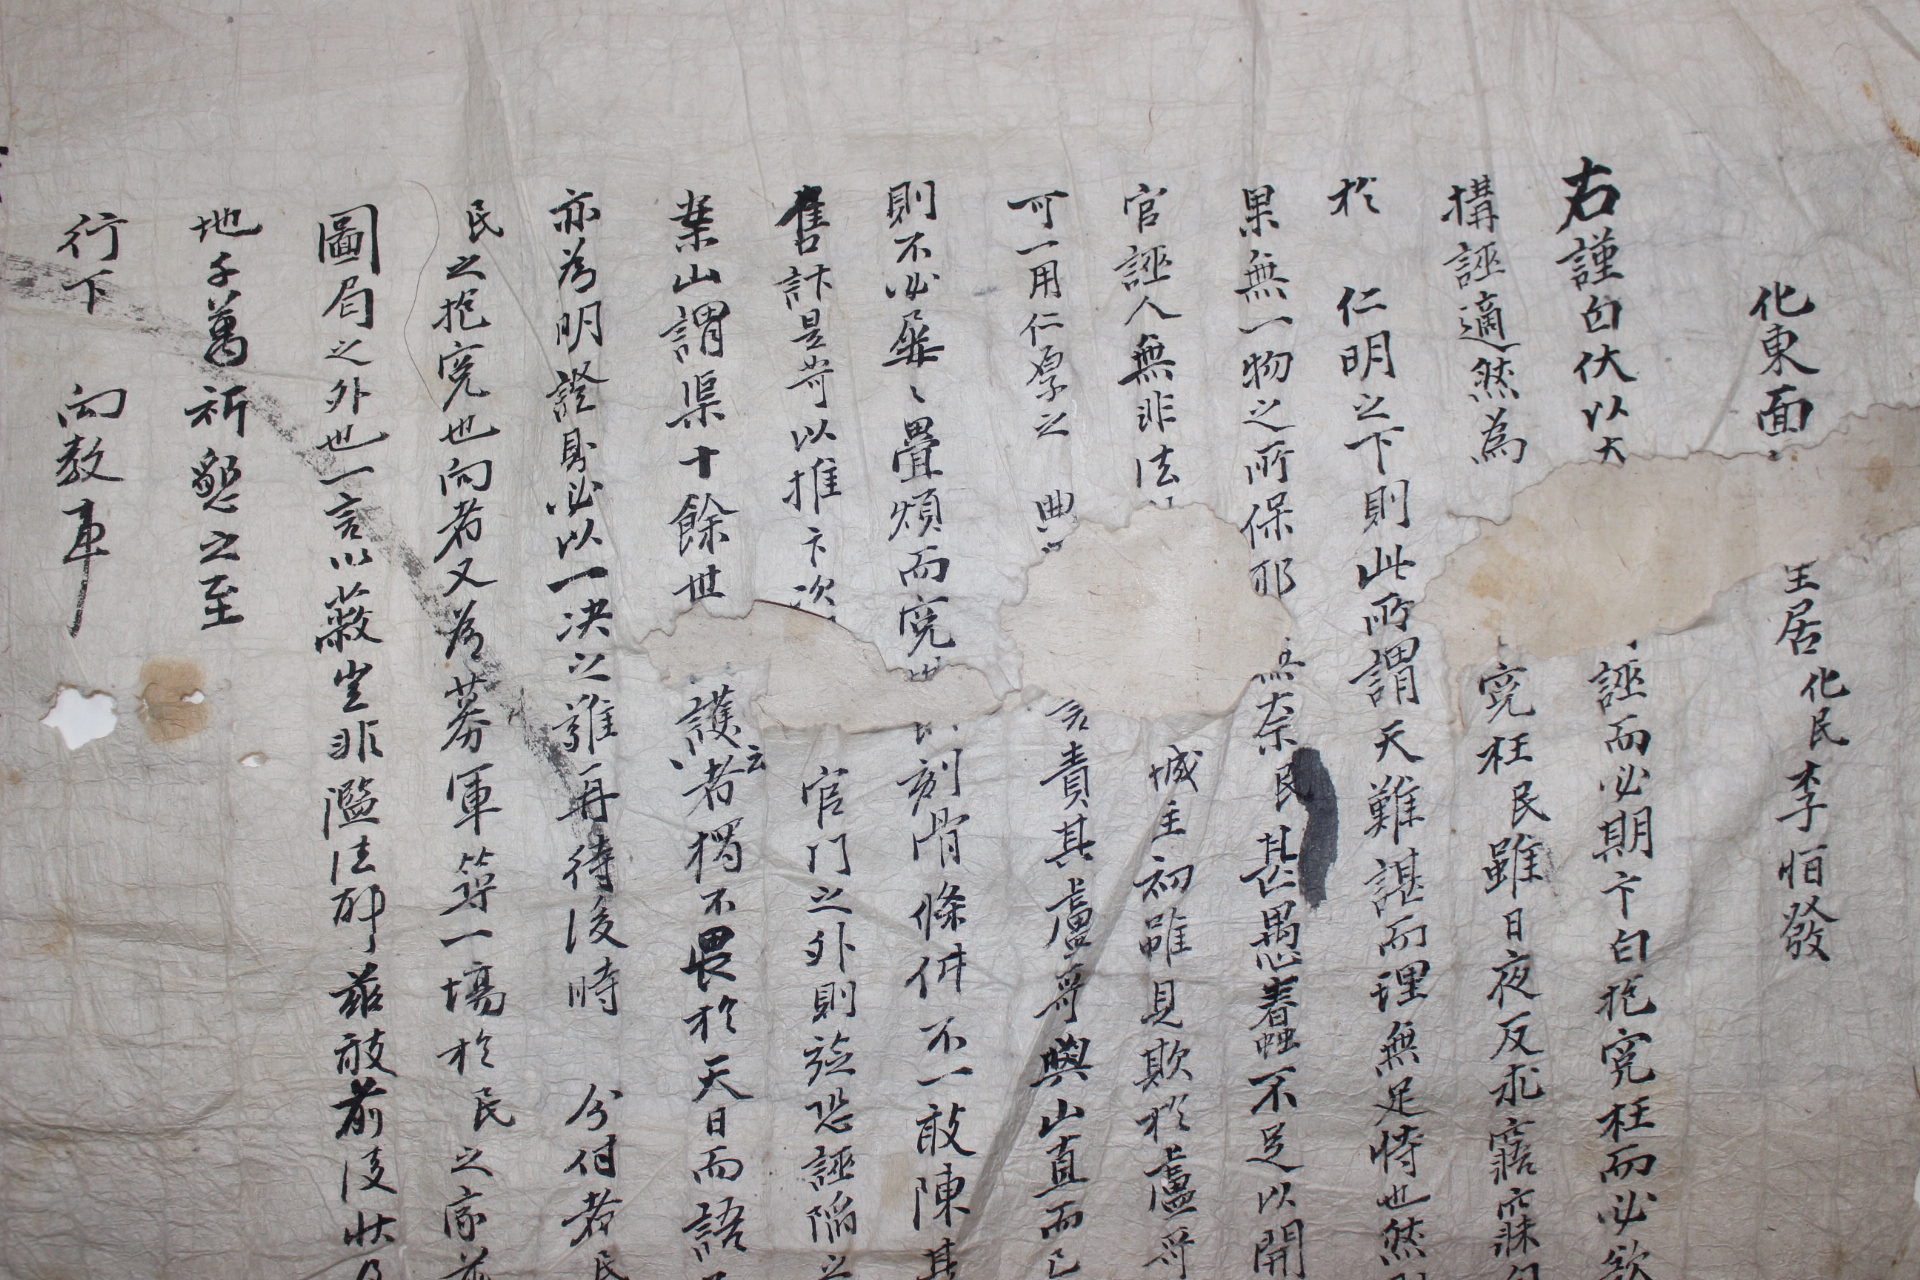 化東面 里居 化民 李恒發
右謹白伏以大 誣而必期卞白抱寃枉而必欲
搆誣適然為 寃枉民雖日夜反求寤寐
於 仁明之下則此所謂天難諶而理無足恃也然
果無一物之所保耶 無奈民甚愚蠢不足以開
官誣人無非法 城主初雖見欺於盧哥
可一用仁厚之 典 言責其盧哥與山直而已
則不必屢〻疊煩而寃 刻骨條件不一敢陳其
舊訐是岢以推卞次 官門之外則旋恐誣陷之
葉山謂渠十餘世 護者云獨不畏於天日而語
亦為明證則必以一決之難再待後時 分付者民
民之抱寃也向者又為募軍等一塲於民之家
圖局之外也一言以蔽豈非濫法耶茲敢前後狀
地千萬祈懇之至
行下 向敎事